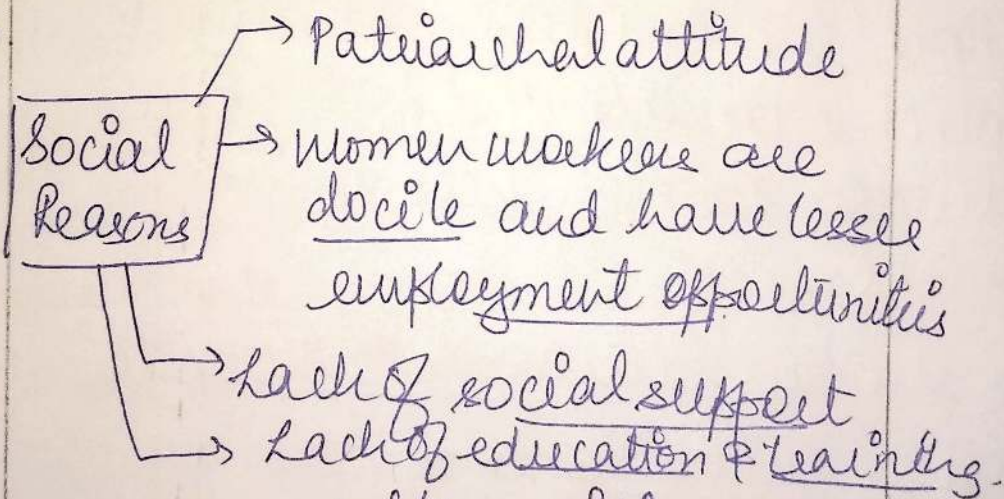 Patriarchal attitude
Social
Reasons
Women workers are
docile and have lesser
employment opportunities
Lack of social support
Lack of education & training.